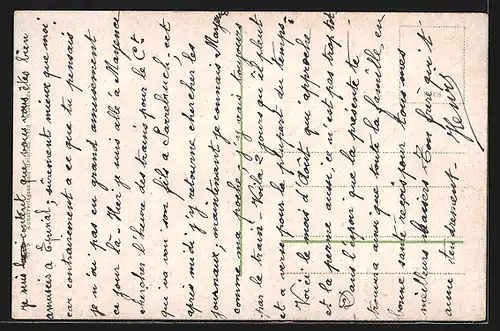 je suis content que vous vous êtes bien
amusées à Epinal, sûrement mieux que moi
car contrairement à ce que tu pensais
je n'ai pas eu grand amusement
ce jour là. Hier je suis allé à Mayence
chercher l'heure des trains pour le Ct
qui va voir son fils à Sarrebruck; cet
après midi j'y retourne chercher les
journaux, maintenant je connais Mayence
comme ma poche, j'y vais toujours
par le train. Voilà 2 jours qu'il pleut
et vente pour la plupart du temps,
Voici le mois d'Août qui approche
et la perme aussi, ce n'est pas trop tôt
Dans l'espoir que la présente te
trouvera ainsi que toute la famille en
bonne santé reçois pour tous mes
meilleurs baisers Ton qui t'
aime tendrement.
Henri